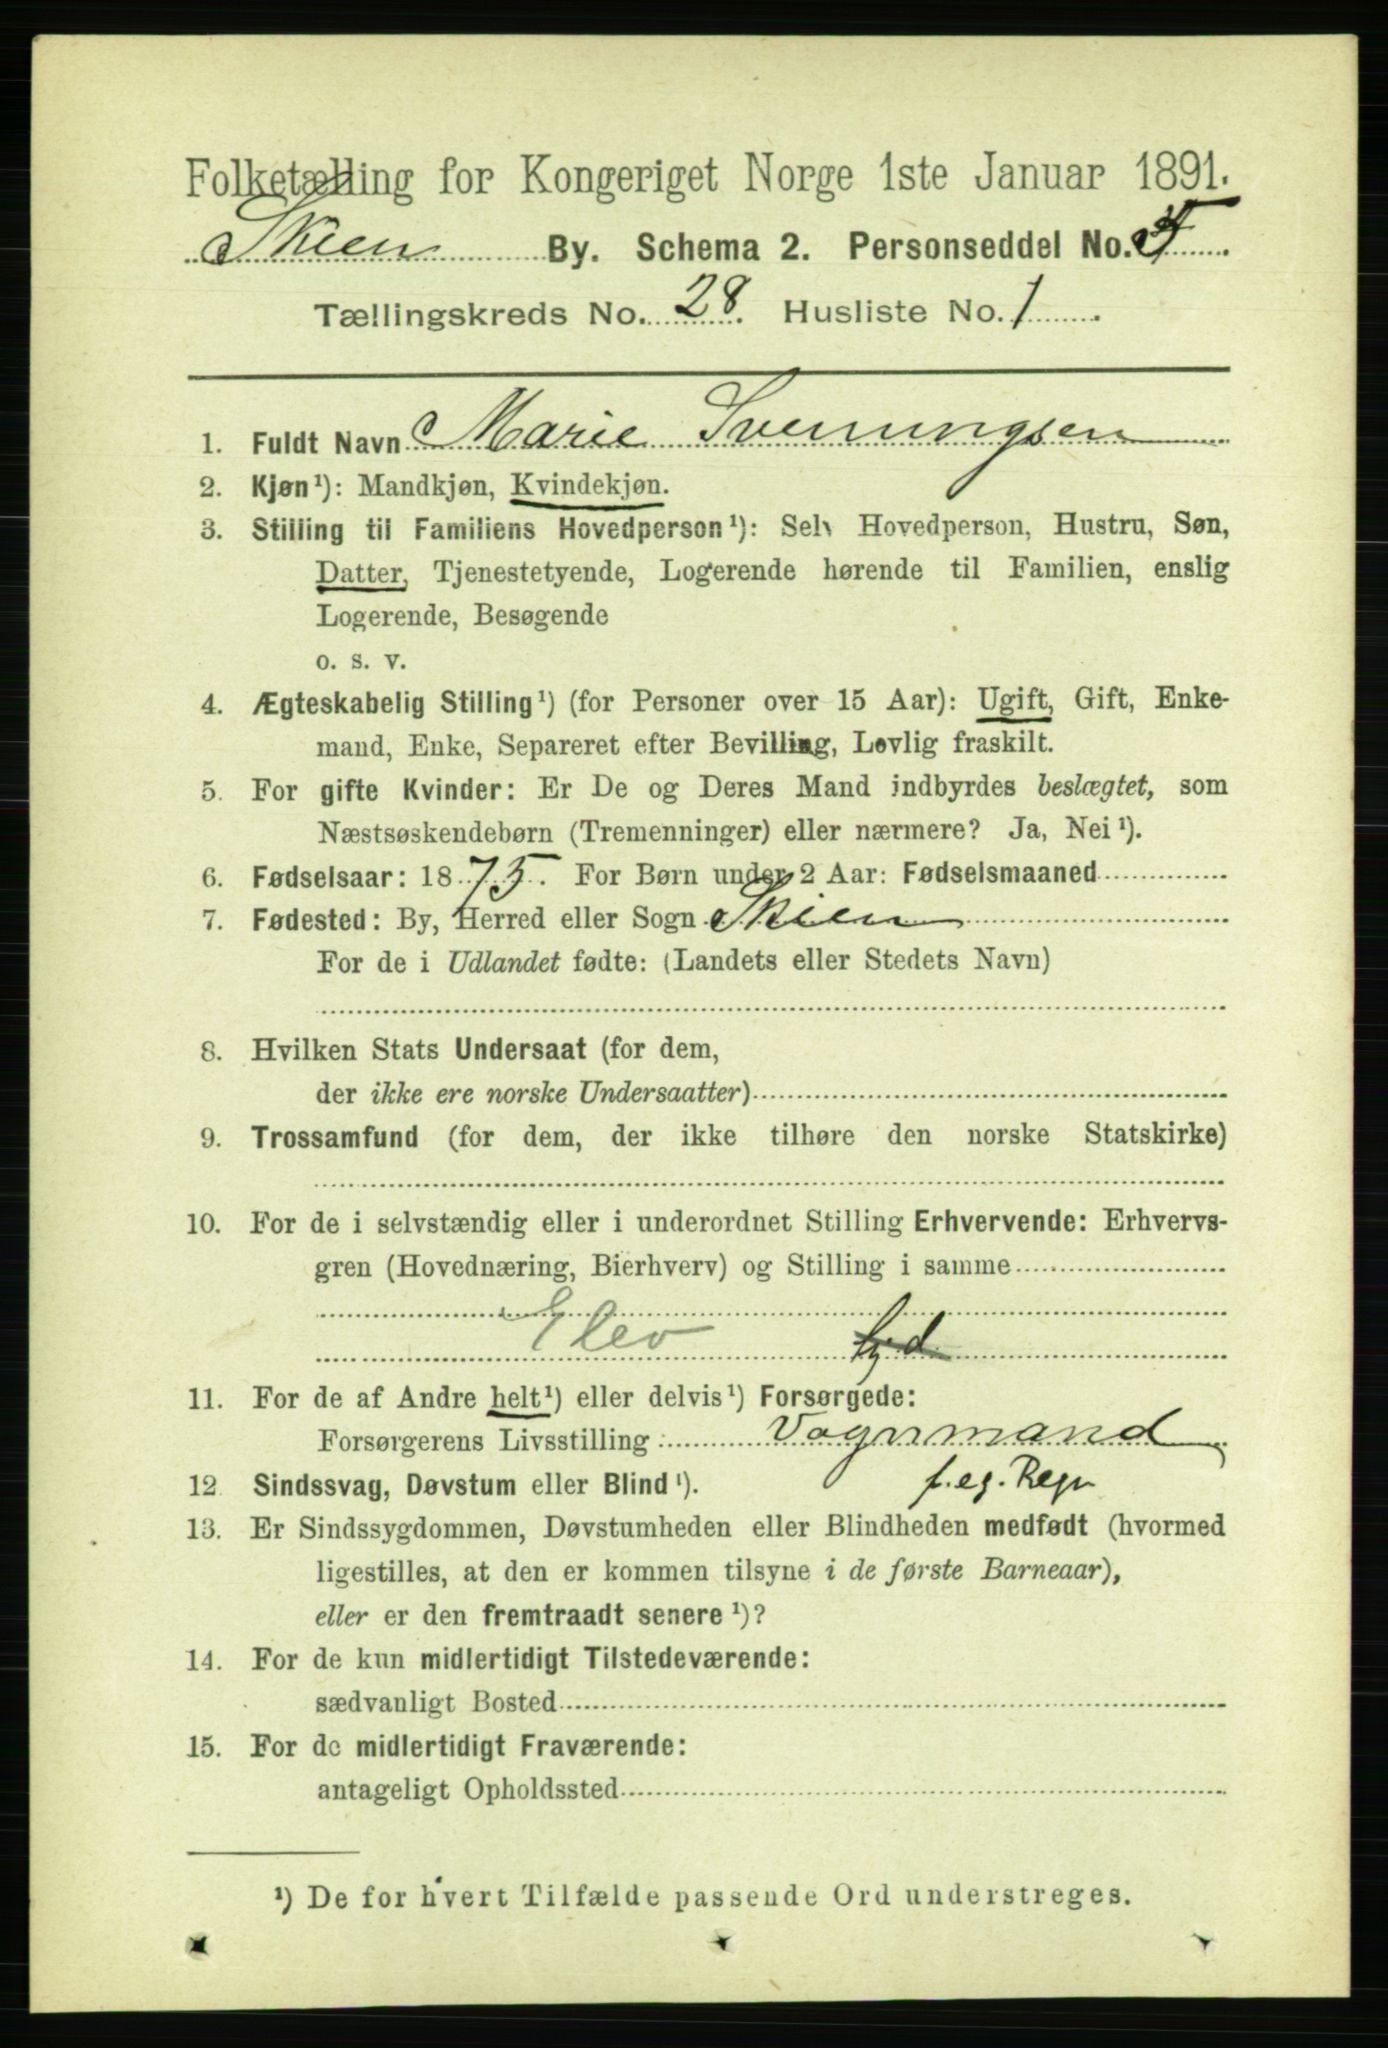 Folketælling for Kongeriget Norge 1ste Januar 1891.
Skien By. Schema 2. Personseddel No. 5
Tællingskreds No. 28. Husliste No. 1
1. Fuldt Navn Marie Svenningsen
2. Kjøn¹): Mandkjøn, Kvindekjøn.
3. Stilling til Familiens Hovedperson¹): Selv Hovedperson, Hustru, Søn,
Datter, Tjenestetyende, Logerende hørende til Familien, enslig
Logerende, Besøgende
o. s. v.
4. Ægteskabelig Stilling¹) (for Personer over 15 Aar): Ugift, Gift, Enke-
mand, Enke, Separeret efter Bevilling, Lovlig fraskilt.
5. For gifte Kvinder: Er De og Deres Mand indbyrdes beslægtet, som
Næstsøskendebørn (Tremenninger) eller nærmere? Ja, Nei¹).
6. Fødselsaar: 1875. For Børn under 2 Aar: Fødselsmaaned
7. Fødested: By, Herred eller Sogn Skien
For de i Udlandet fødte: (Landets eller Stedets Navn)
8. Hvilken Stats Undersaat (for dem,
der ikke ere norske Undersaatter)
9. Trossamfund (for dem, der ikke tilhøre den norske Statskirke)
10. For de i selvstændig eller i underordnet Stilling Erhvervende: Erhvervs-
gren (Hovednæring, Bierhverv) og Stilling i samme
Elev
11. For de af Andre helt¹) eller delvis¹) Forsørgede:
Forsørgerens Livsstilling: Vognmand
f. eg. Regn
12 Sindssvag, Døvstum eller Blind¹).
13. Er Sindssygdommen, Døvstumheden eller Blindheden medfødt (hvormed
ligestilles, at den er kommen tilsyne i de første Barneaar),
eller er den fremtraadt senere¹)?
14. For de kun midlertidigt Tilstedeværende:
sædvanligt Bosted
15. For de midlertidigt Fraværende:
antageligt Opholdssted
¹) De for hvert Tilfælde passende Ord understreges.